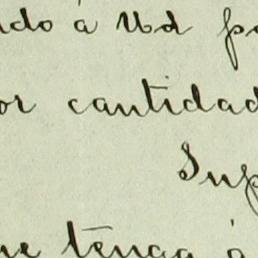 ndo á Ud pa
or cantidad
Sup
ue tenga á